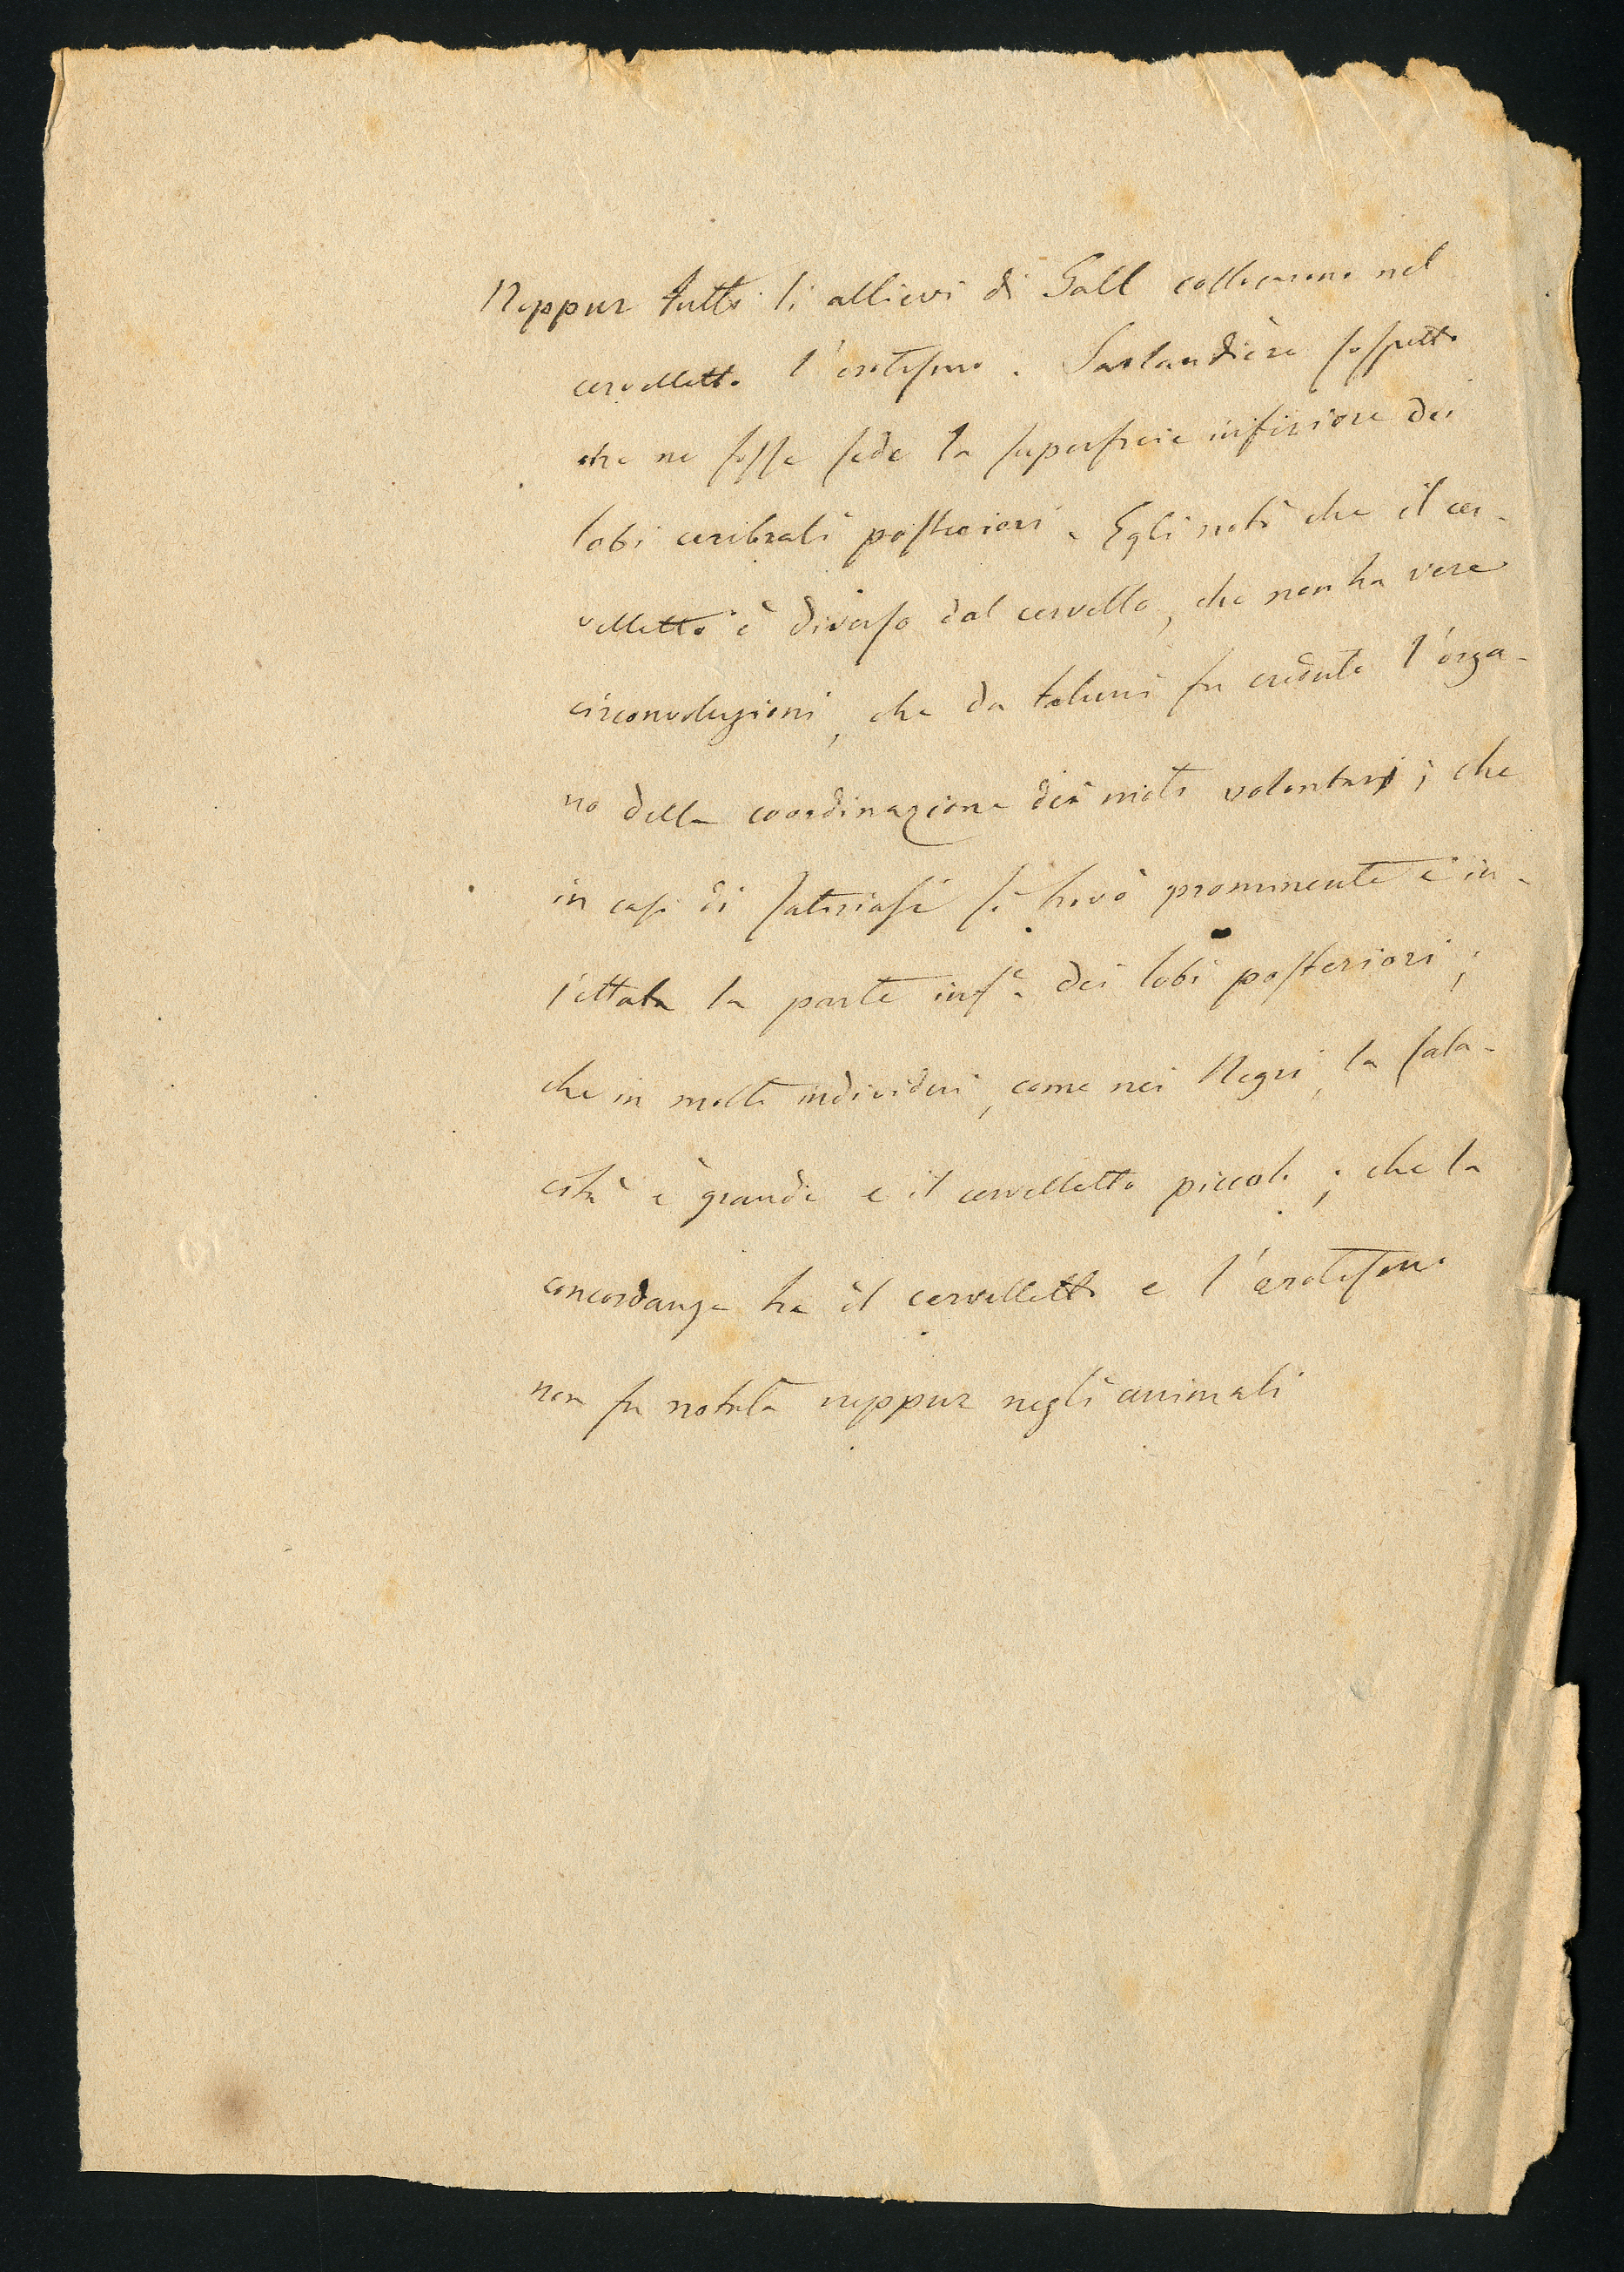 Neppur tutti li allievi di Gall collocarono nel
cervelletto l'erotismo. Sarlandière sospettò
che ne fosse sede la superficie inferiore dei
lobi cerebrali posteriori. Egli notò che il cer-
velletto è diverso dal cervello, che non ha vere
circonvoluzioni, che da taluni fu creduto l'orga-
no della coordinazione dei moti volontarj; che
in casi di satiriasi si trovò prominente e in-
iettata la parte infe. dei lobi posteriori;
che in molti individui, come nei Negri, la sala-
cità è grande e il cervelletto piccolo; che la
concordanza tra il cervelletto e l'erotismo
non fu notata neppur negli animali